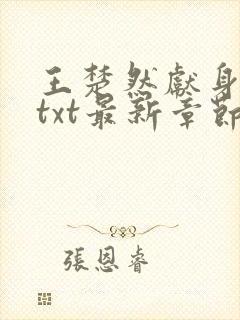 王楚然獻身
txt最新章節
張恩睿